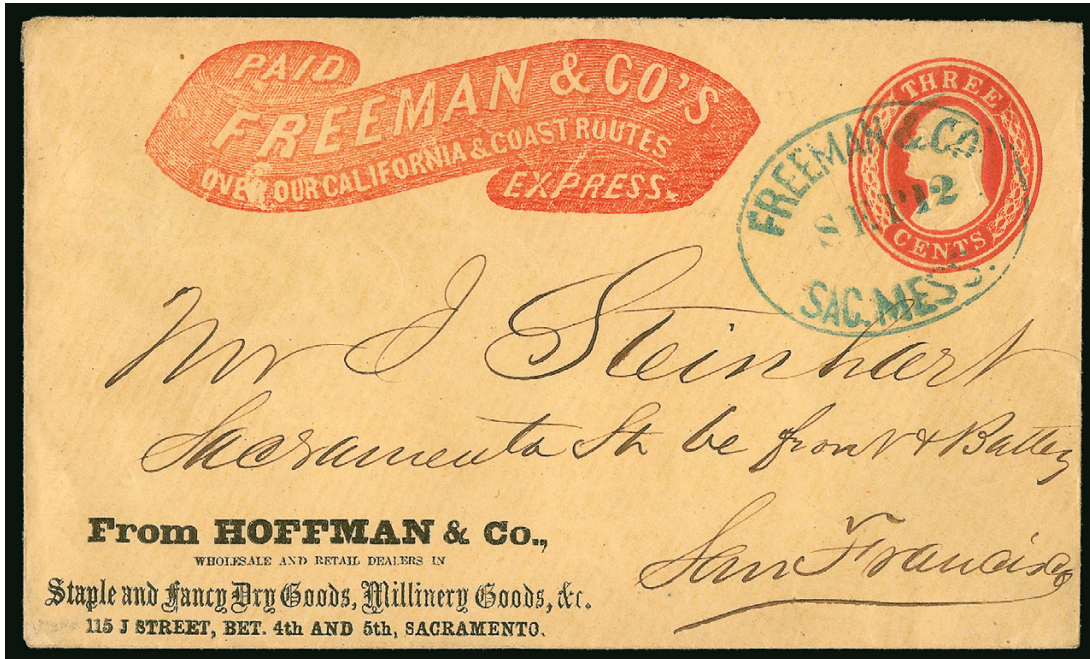 PAID
FREEMAN & CO'S
OVER OUR CALIFORNIA & COAST ROUTES
EXPRESS.
THREE
CENTS
FREEMAN & CO
SEP 12
SAC. MESS.
Mr J Steinhart
Sacramento St be front & Battery
San Francisco
From HOFFMAN & Co.,
WHOLESALE AND RETAIL DEALERS IN
Staple and Fancy Dry Goods, Millinery Goods, &c.
115 J STREET, BET. 4th AND 5th, SACRAMENTO.